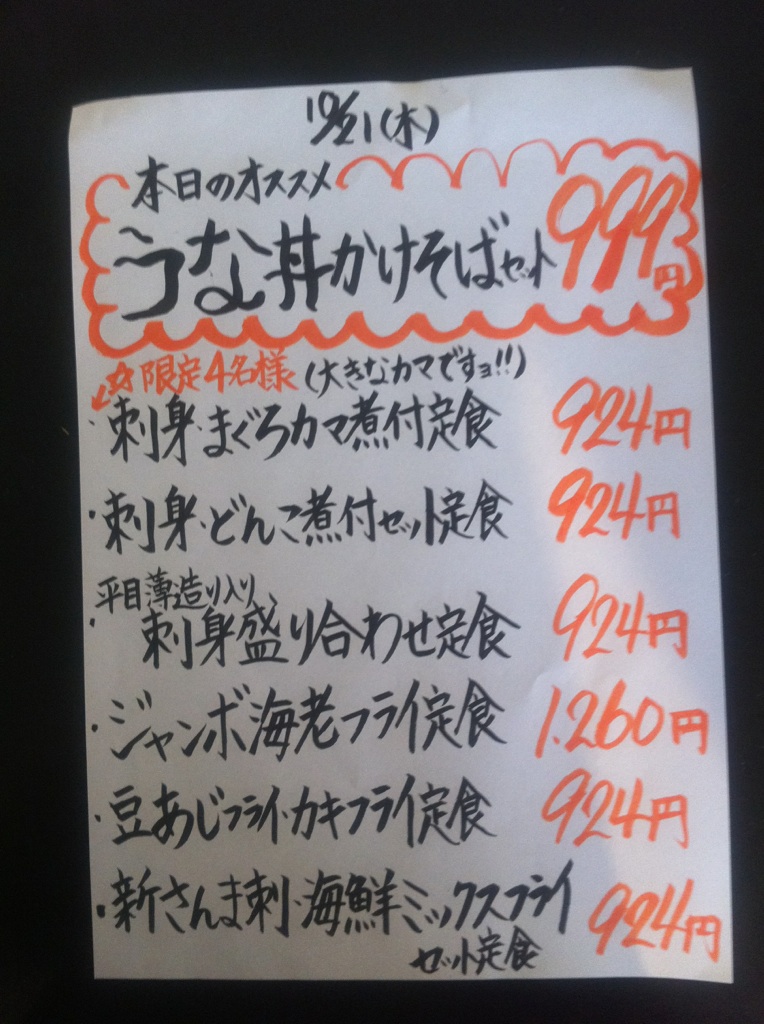 10/21(木)
本日のオススメ
うな丼かけそばセット 999円
☆限定4名様(大きなカマですョ!!)
・刺身・まぐろカマ煮付定食 924円
・刺身・どんこ煮付セット定食 924円
平目薄造り入り
・刺身盛り合わせ定食 924円
・ジャンボ海老フライ定食 1.260円
・豆あじフライ・カキフライ定食 924円
・新さんま刺・海鮮ミックスフライ 924円
セット定食